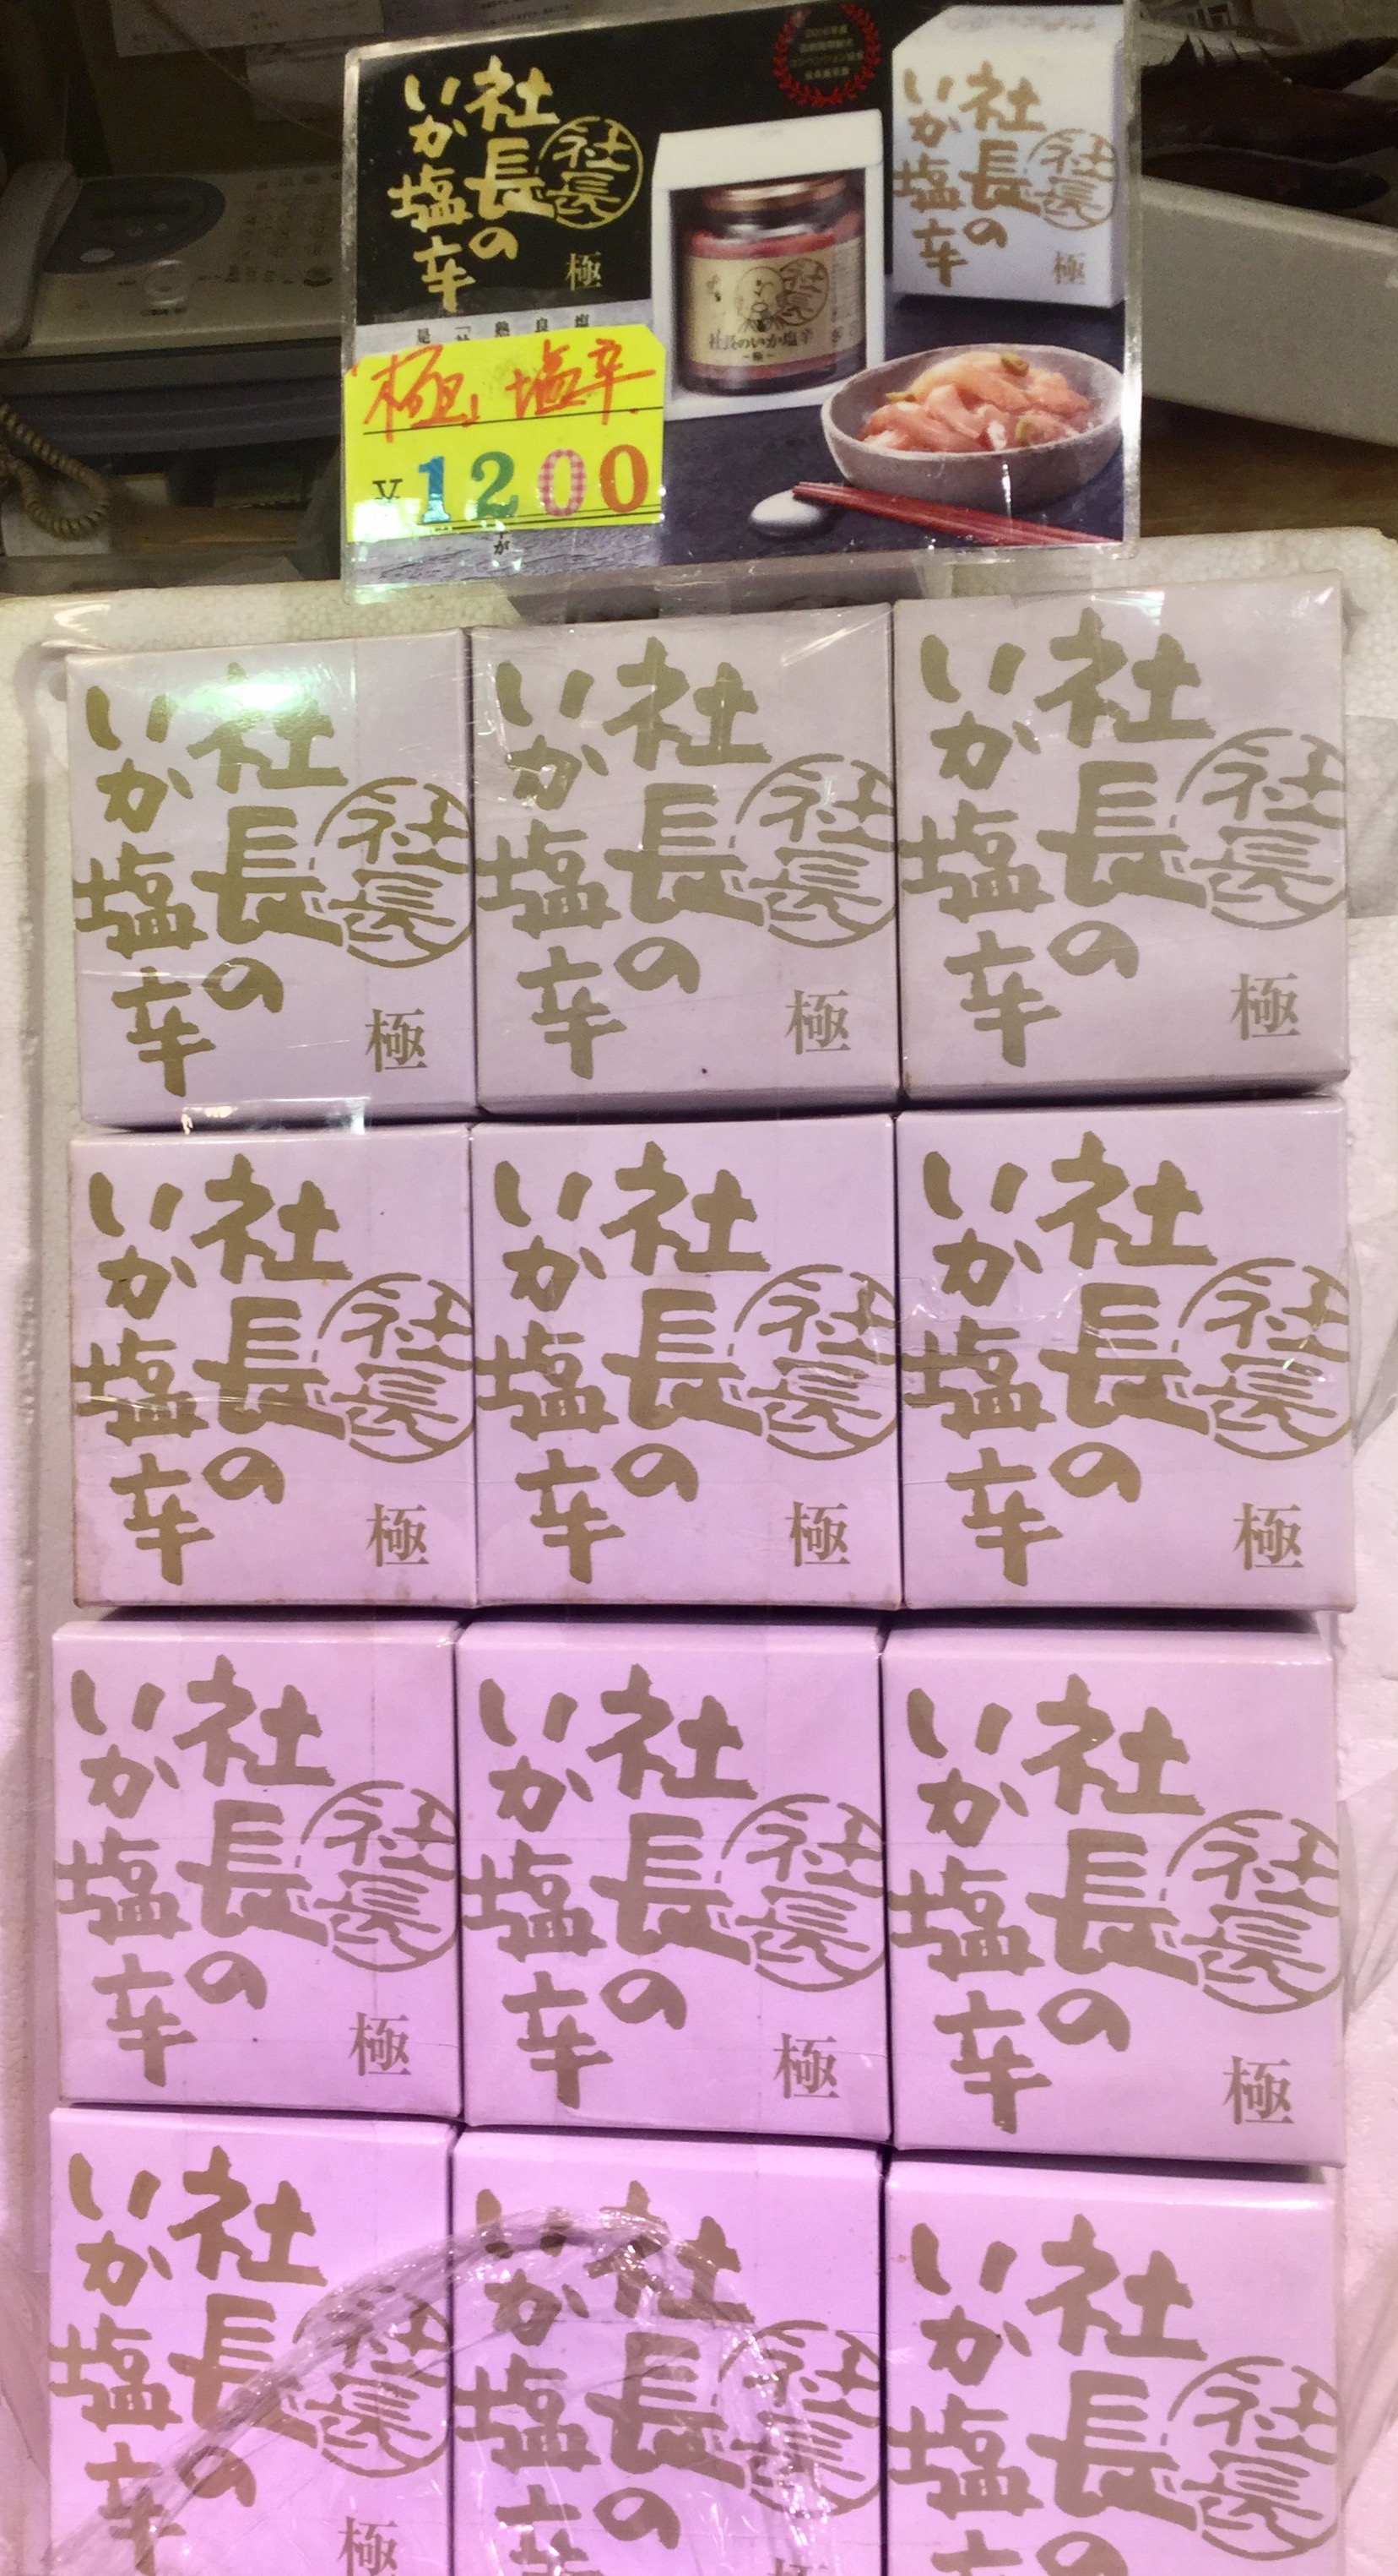 社長の
いか塩辛
社長
極
社長の
いか塩辛
社長
極
社長
社長のいか塩辛
~極~
極 塩辛
¥1200
社長の
いか塩辛
社長
極
社長の
いか塩辛
社長
極
社長の
いか塩辛
社長
極
社長の
いか塩辛
社長
極
社長の
いか塩辛
社長
極
社長の
いか塩辛
社長
極
社長の
いか塩辛
社長
極
社長の
いか塩辛
社長
極
社長の
いか塩辛
社長
極
社長の
いか塩辛
社長
極
社長の
いか塩辛
社長
社長の
いか塩
社長